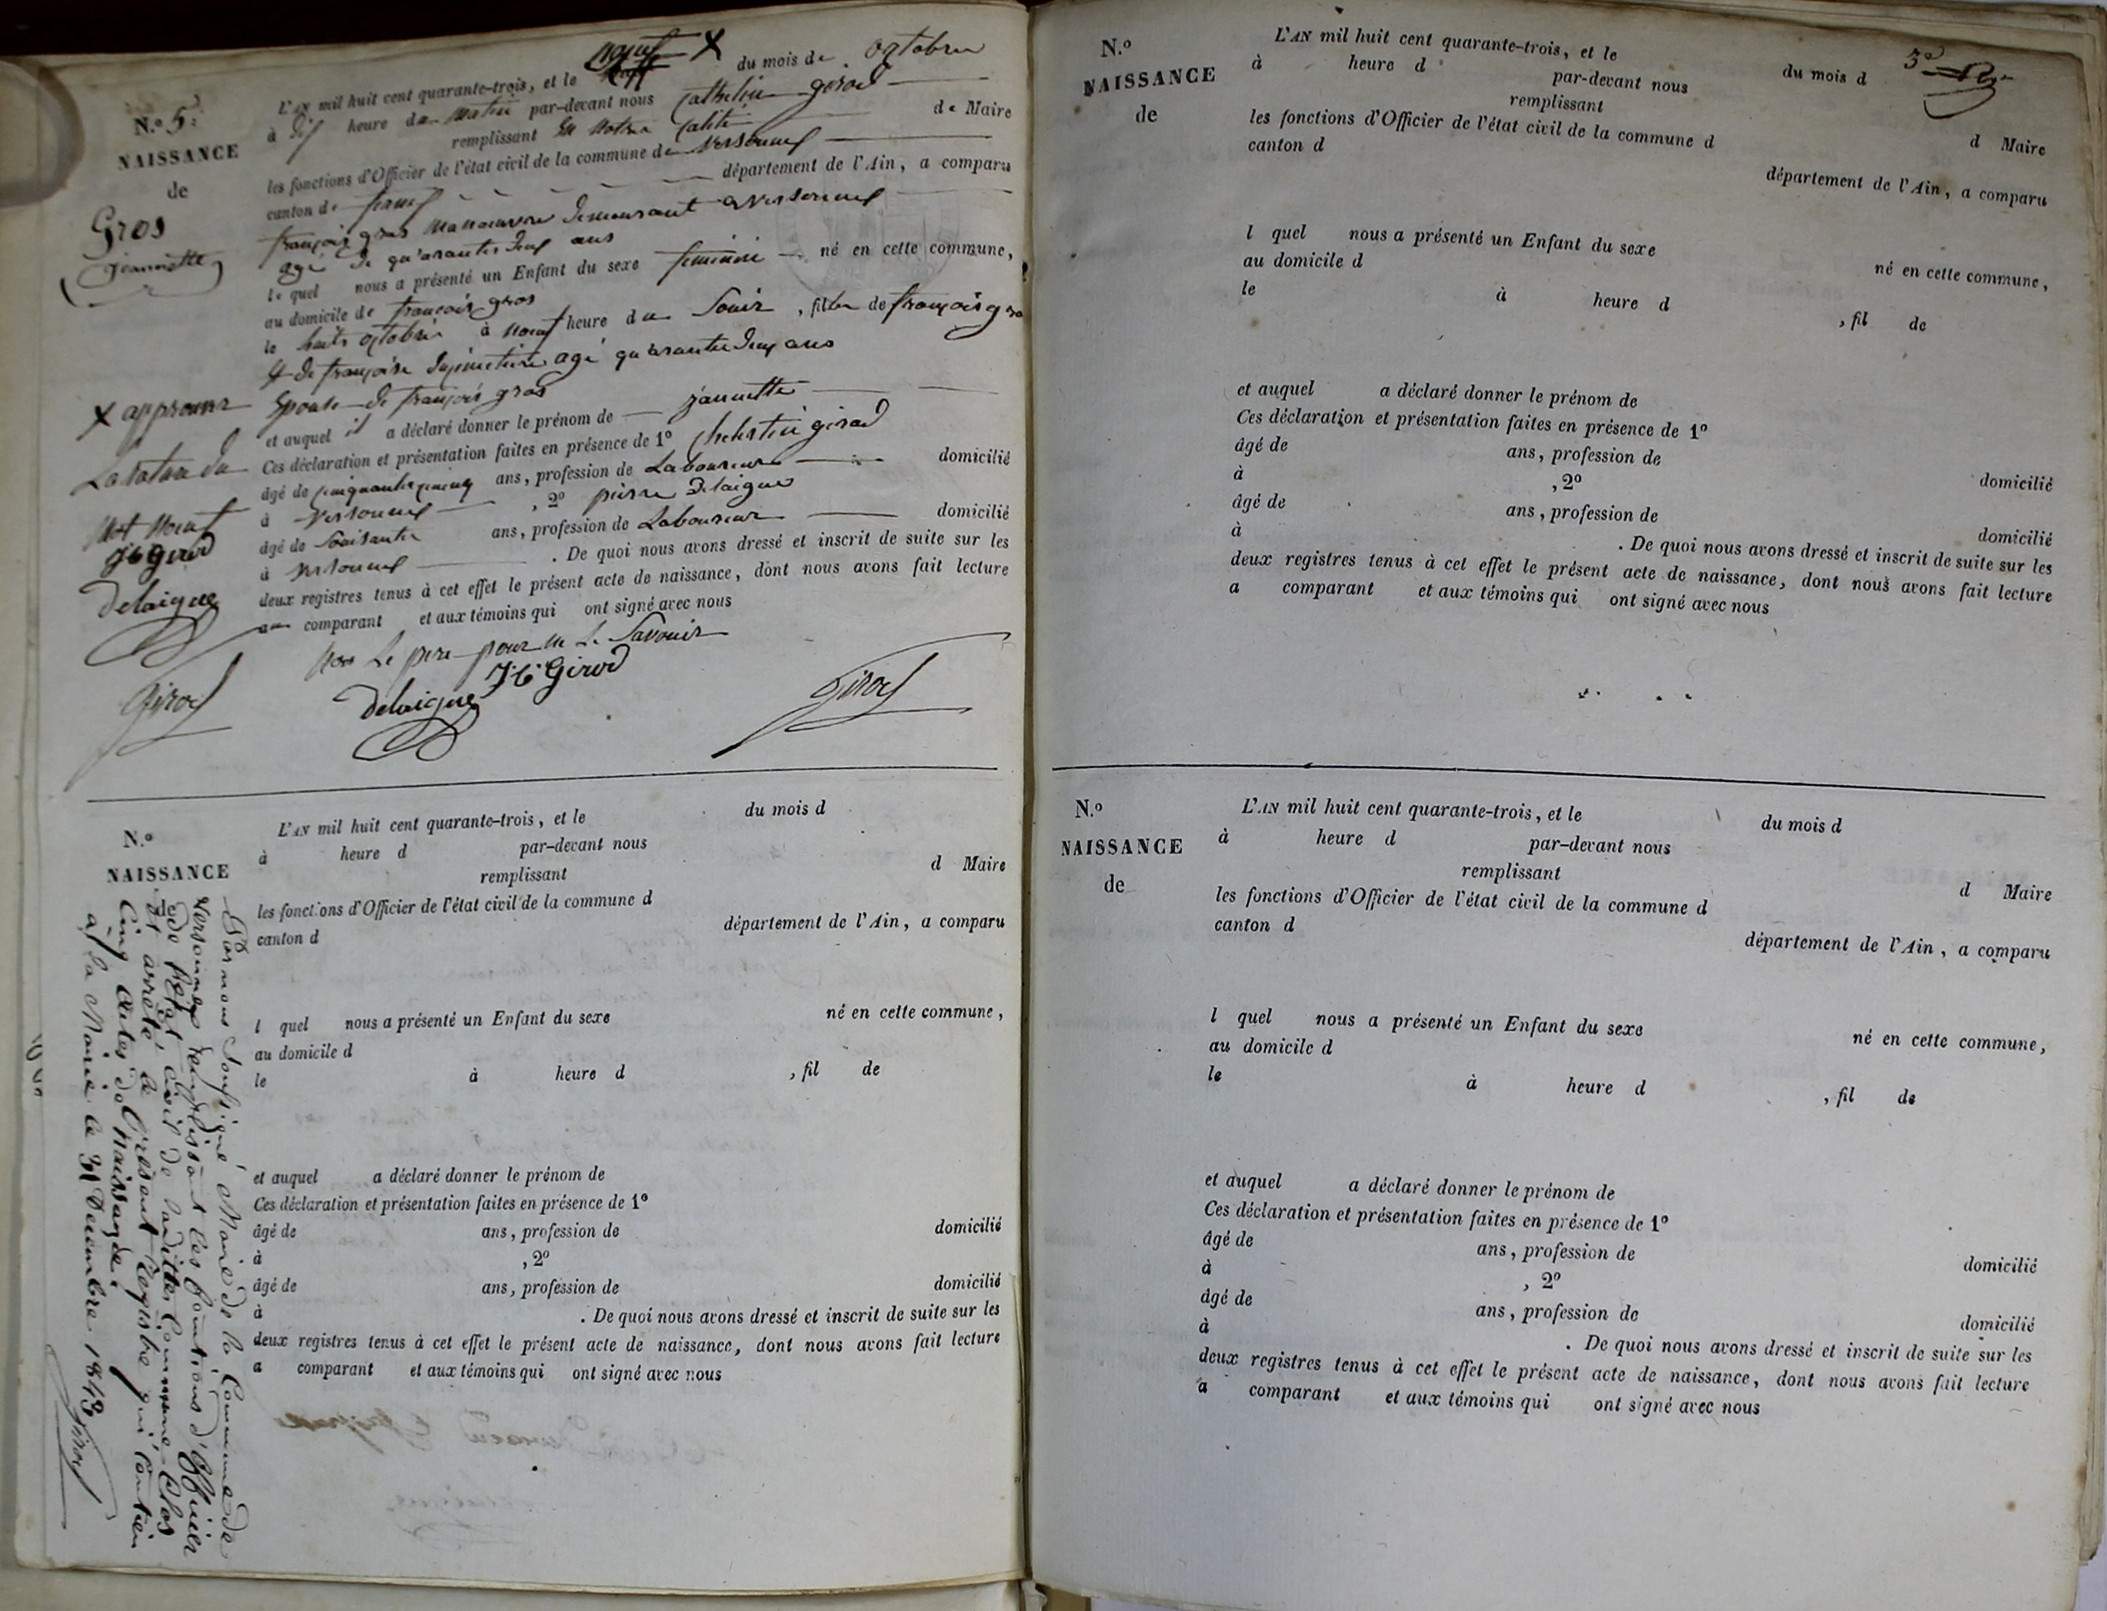 N.º 5.
NAISSANCE
de
Gros
jeannette
L'AN mil huit cent quarante-trois, et le neuf X du mois de octobre
à dix heure du matin par-devant nous girod
remplissant en notre qalité de Maire
les fonctions d'Officier de l'état civil de la commune de versonnex
canton de ferney département de l'Ain, a comparu
françois gros manoeuvre demeurant a versonnex
agé de quarante deux ans
le quel nous a présenté un Enfant du sexe feminin né en cette commune,
au domicile de françois gros
le huit octobre à neuf heure du soir, fille de françois gros
& de françoise agé quarante deux ans
Epouse de françois gros
et auquel il a déclaré donner le prénom de jannette
Ces déclaration et présentation faites en présence de 1º girod
âgé de ans, profession de Laboureur domicilié
à versonnex, 2º pierre delaigue
âgé de soisante ans, profession de Laboureur domicilié
à versonnex. De quoi nous avons dressé et inscrit de suite sur les
deux registres tenus à cet effet le présent acte de naissance, dont nous avons fait lecture
au comparant et aux témoins qui ont signé avec nous
non Le pere pour ne Le savoir
X approuvé
La rature du
mot neuf
Girod
delaigue
Girod
delaigue
Girod
Girod
N.º
NAISSANCE
de
L'AN mil huit cent quarante-trois, et le du mois d
à heure d par-devant nous
remplissant d Maire
les fonctions d'Officier de l'état civil de la commune d
canton d département de l'Ain, a comparu
l quel nous a présenté un Enfant du sexe né en cette commune,
au domicile d
le à heure d, fil de
et auquel a déclaré donner le prénom de
Ces déclaration et présentation faites en présence de 1º
âgé de ans, profession de domicilié
à, 2º
âgé de ans, profession de domicilié
à. De quoi nous avons dressé et inscrit de suite sur les
deux registres tenus à cet effet le présent acte de naissance, dont nous avons fait lecture
a comparant et aux témoins qui ont signé avec nous
Par nous soussigné Maire de la Commune de
Versonnex remplissant les fonctions d'officier
de l'état civil de laditte Commune clos
et arreté le présent Registre qui contien
cinq actes de Naissance.
a la Mairie le 31 Decembre 1843
Girod
N.º
NAISSANCE
de
L'AN mil huit cent quarante-trois, et le du mois d
à heure d par-devant nous
remplissant d Maire
les fonctions d'Officier de l'état civil de la commune d
canton d département de l'Ain, a comparu
l quel nous a présenté un Enfant du sexe né en cette commune,
au domicile d
le à heure d, fil de
et auquel a déclaré donner le prénom de
Ces déclaration et présentation faites en présence de 1º
âgé de ans, profession de domicilié
à, 2º
âgé de ans, profession de domicilié
à. De quoi nous avons dressé et inscrit de suite sur les
deux registres tenus à cet effet le présent acte de naissance, dont nous avons fait lecture
a comparant et aux témoins qui ont signé avec nous
N.º
NAISSANCE
de
L'AN mil huit cent quarante-trois, et le du mois d
à heure d par-devant nous
remplissant d Maire
les fonctions d'Officier de l'état civil de la commune d
canton d département de l'Ain, a comparu
l quel nous a présenté un Enfant du sexe né en cette commune,
au domicile d
le à heure d, fil de
et auquel a déclaré donner le prénom de
Ces déclaration et présentation faites en présence de 1º
âgé de ans, profession de domicilié
à, 2º
âgé de ans, profession de domicilié
à. De quoi nous avons dressé et inscrit de suite sur les
deux registres tenus à cet effet le présent acte de naissance, dont nous avons fait lecture
a comparant et aux témoins qui ont signé avec nous